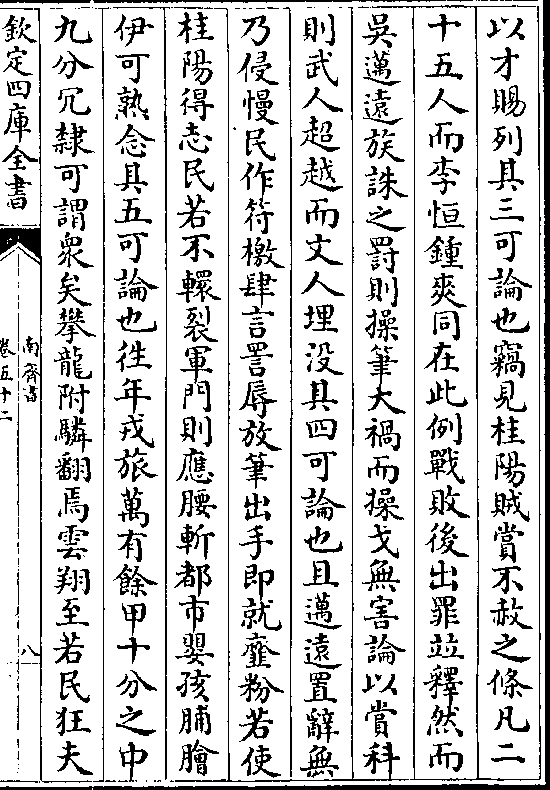 以才賜列其三可論也竊見桂陽賊賞不赦之條凡二
十五人而李恒鍾爽同在此例戰敗後出罪並釋然而
吳邁遠族誅之罰則操筆大禍而操戈無害論以賞科
則武人超越而文人埋没其四可論也且邁遠置辭無
乃侵慢民作符檄肆言詈辱放筆出手即就虀粉若使
桂陽得志民若不轘裂軍門則應腰斬都市嬰孩脯膾
伊可熟念其五可論也徃年戎旅萬有餘甲十分之中
九分冗隸可謂衆矣攀龍附驎翻焉雲翔至若民狂夫
欽定四庫全書
南齊書
卷五十二
八